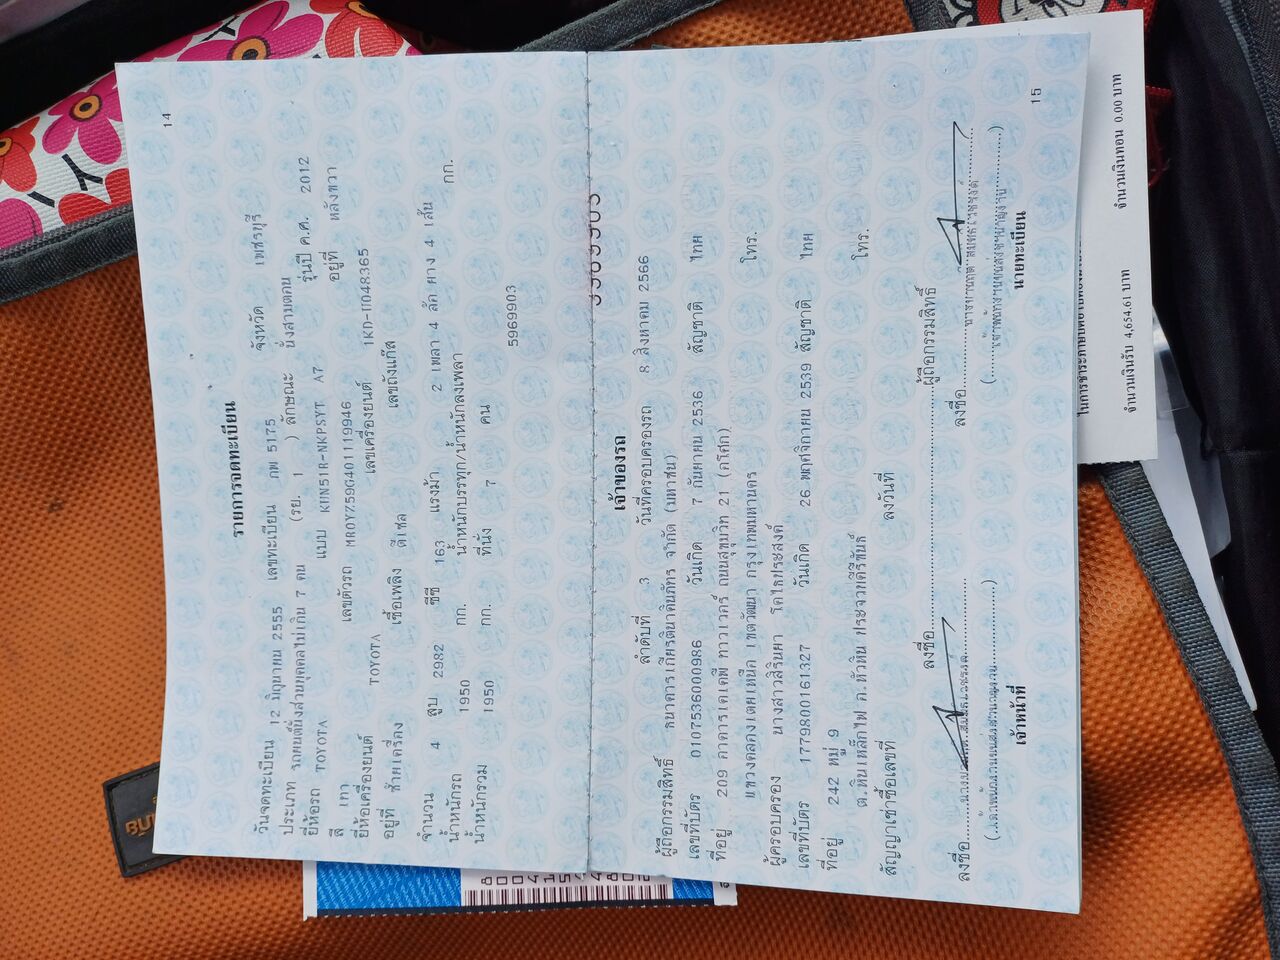 14
รายการจดทะเบียน
วันจดทะเบียน 12 มิถุนายน 2555 เลขทะเบียน ภพ 5175 จังหวัด เพชรบุรี
ประเภท รถยนต์นั่งส่วนบุคคลไม่เกิน 7 คน (รย. 1 ) ลักษณะ นั่งสามตอน
ยี่ห้อรถ TOYOTA แบบ KUN51R-NKPSYT A7 รุ่นปี ค.ศ. 2012
สี เทา เลขตัวรถ MR0YZ59G401119946 อยู่ที่ หลังขวา
ยี่ห้อเครื่องยนต์ TOYOTA เลขเครื่องยนต์ 1KD-U048365
อยู่ที่ ซ้ายเครื่อง เชื้อเพลิง ดีเซล เลขถังแก๊ส
จำนวน 4 สูบ 2982 ซีซี 163 แรงม้า 2 เพลา 4 ล้อ ยาง 4 เส้น
น้ำหนักรถ 1950 กก. น้ำหนักบรรทุก/น้ำหนักลงเพลา กก.
น้ำหนักรวม 1950 กก. ที่นั่ง 7 คน
5969903
เจ้าของรถ
ลำดับที่ 3 วันที่ครอบครองรถ 8 สิงหาคม 2566
ผู้ถือกรรมสิทธิ์ ธนาคารเกียรตินาคินภัทร จำกัด (มหาชน)
เลขที่บัตร 0107536000986 วันเกิด 7 กันยายน 2536 สัญชาติ ไทย
ที่อยู่ 209 อาคารเคเคพี ทาวเวอร์ ถนนสุขุมวิท 21 (อโศก) โทร.
แขวงคลองเตยเหนือ เขตวัฒนา กรุงเทพมหานคร
ผู้ครอบครอง นางสาวสิรินยา โคไธประสงค์
เลขที่บัตร 1779800161327 วันเกิด 26 พฤศจิกายน 2539 สัญชาติ ไทย
ที่อยู่ 242 หมู่ 9 โทร.
ต.หินเหล็กไฟ อ.หัวหิน ประจวบคีรีขันธ์
สัญญาเช่าซื้อเลขที่ ลงวันที่
ลงชื่อ ผู้ถือกรรมสิทธิ์
ลงชื่อ
ลงชื่อ
เจ้าหน้าที่
นายทะเบียน
15
จำนวนเงินรับ 4,654.61 บาท จำนวนเงินทอน 0.00 บาท